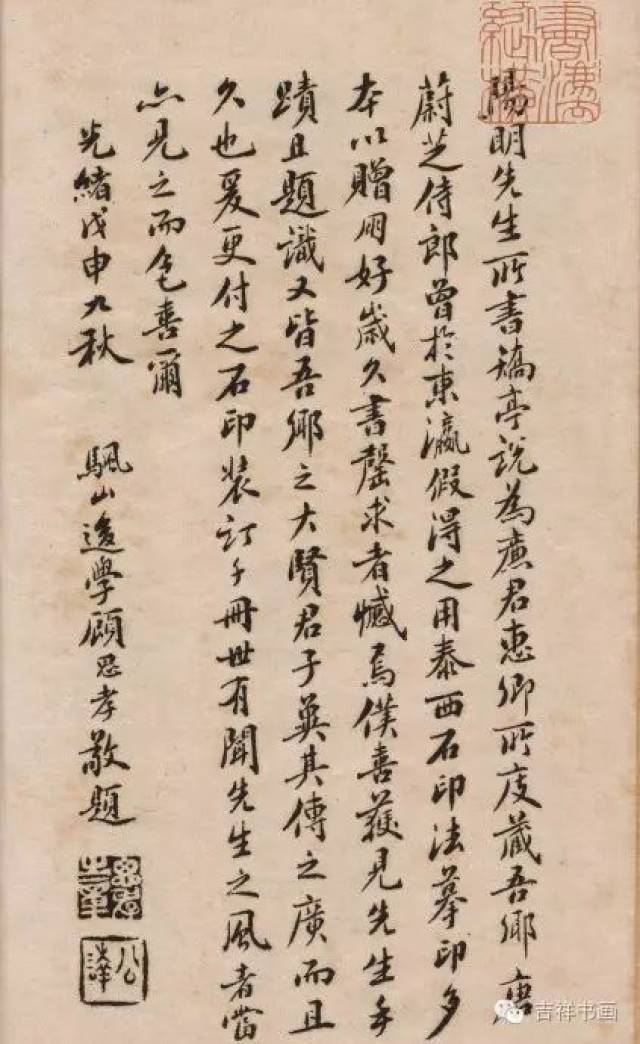 陽明先生所書矯亭說為廉君惠卿所庋藏吾鄉唐
蔚芝侍郎曾於東瀛假得之用泰西石印法摹印多
本以贈朋好歲久書罄求者憾焉僕喜獲見先生手
蹟且題識又皆吾鄉之大賢君子冀其傳之廣而且
久也爰更付之石印裝訂千冊世有聞先生之風者當
亦見之而色喜爾
光緒戊申九秋
颿山後學顧思孝敬題
公
吉祥书画